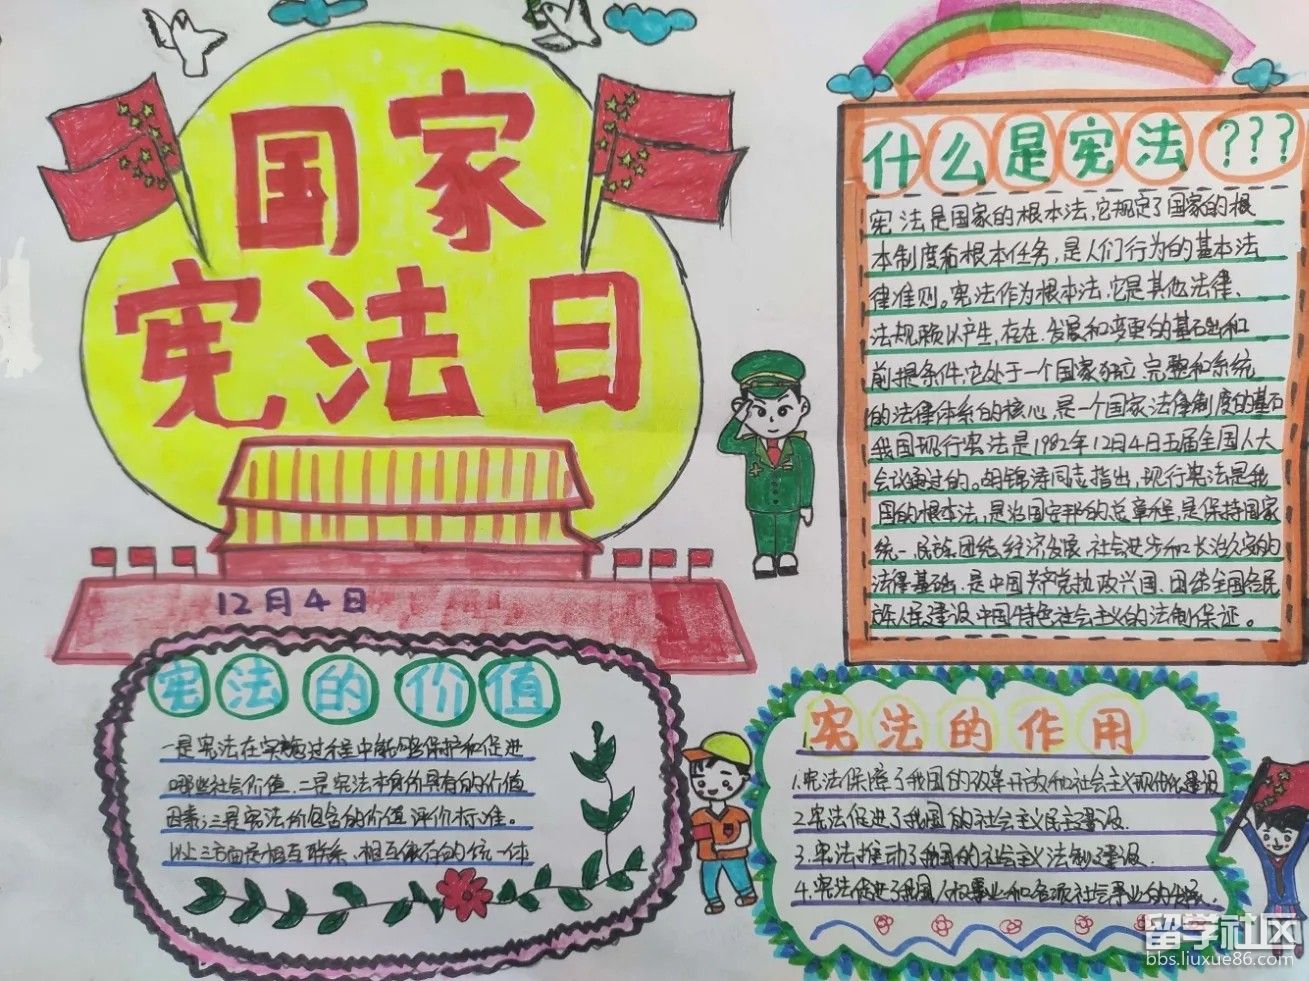 国家
宪法日
12月4日
什么是宪法???
宪法是国家的根本法,它规定了国家的根
本制度和根本任务,是人们行为的基本法
律准则。宪法作为根本法,它是其他法律、
法规赖以产生,存在.发展和变更的基础和
前提条件,它处于一个国家独立,完整和系统
的法律体系的核心,是一个国家法律制度的基石
我国现行宪法是1982年12月4日五届全国人大
会议通过的。胡锦涛同志指出,现行宪法是我
国的根本法,是治国安邦的总章程,是保持国家
统一.民族团结,经济发展.社会进步和长治久安的
法律基础.是中国共产党执政兴国、团结全国各民
族人民建设中国特色社会主义的法制保证。
宪法的价值
一是宪法在实施过程中能够保护和促进
哪些社会价值.二是宪法本身的具有的价值
因素;三是宪法所包含的价值评价标准。
以上三方面是相互联系.相互依存的统一体
宪法的作用
1.宪法保障了我国的改革开放和社会主义现代化建设
2.宪法促进了我国的社会主义民主建设.
3.宪法推动了我国的社会主义法制建设.
4.宪法促进了我国人权事业和各项社会事业的发展.
留学社区
bbs.liuxue86.com